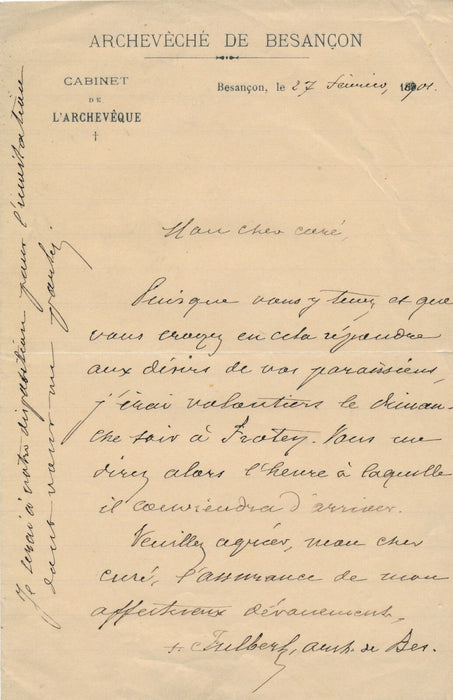 ARCHEVÊCHÉ DE BESANÇON
CABINET
DE
L'ARCHEVÊQUE
Besançon, le 27 février, 1901.
Mon cher curé,
Puisque vous y tenez et que
vous croyez en cela répondre
aux désirs de vos paroissiens,
j'irai volontiers le diman-
che soir à Frotey. Vous me
direz alors l'heure à laquelle
il conviendra d'arriver.
Veuillez agréer, mon cher
curé, l'assurance de mon
affectueux dévouement,
+ Fulbert, arch. de Bes.
Je serai à votre disposition pour l'invitation
dont vous me parlez.